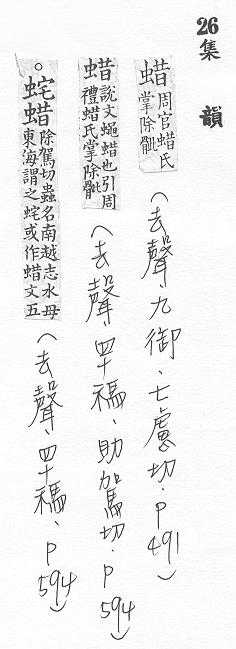 26 集韻
蜡 周官蜡氏
掌除骴
(去聲、九御、七慮切. P491)
蜡 說文蠅蜡也引周
禮蜡氏掌除骴
(去聲、四十禡、助駕切. P594)
○䖳蜡 除駕切蟲名南越志水母
東海謂之䖳或作蜡文五
(去聲、四十禡、P594)